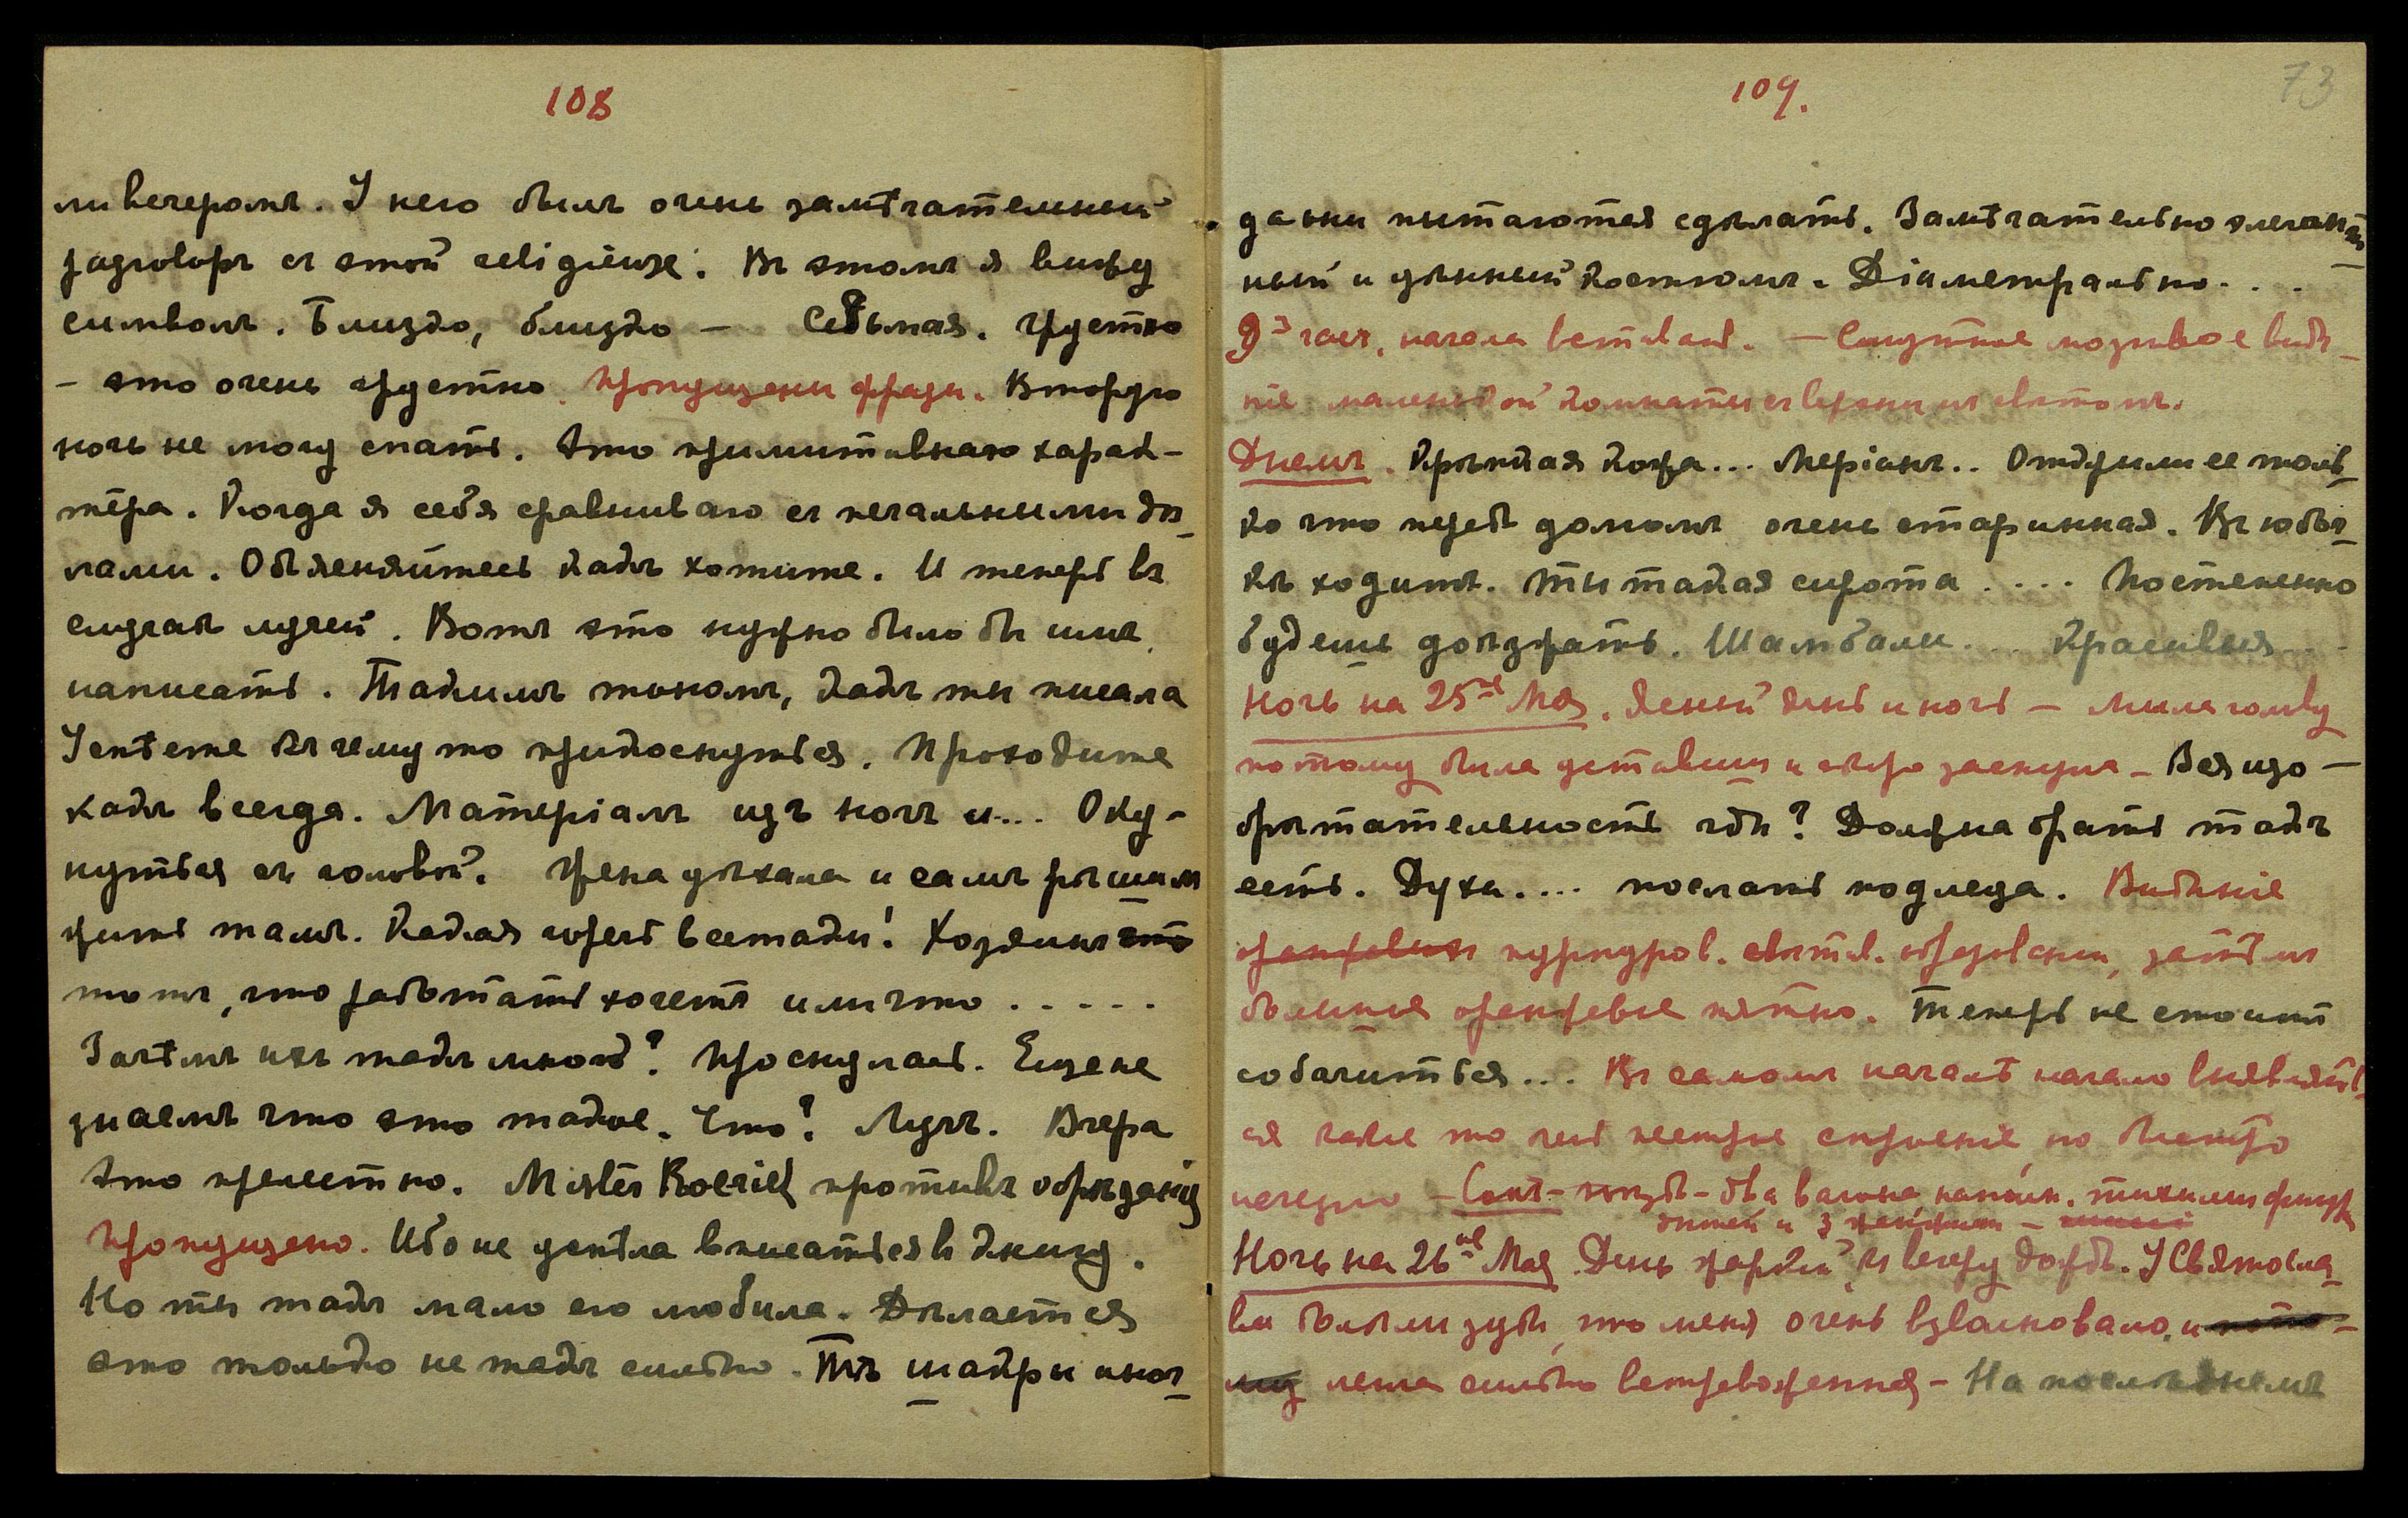 108
ли вечеромъ. У него былъ очень замѣчательный
разговоръ съ этой religieuse. Въ этомъ я вижу
символъ. Близко, близко — Седьмая. Грустно
— это очень грустно. Пропущены фразы. Вторую
ночь не могу спать. Это примитивнаго харак-
тера. Когда я себя сравниваю съ печальными
лами. Объясняйтесь какъ хотите. И теперь въ
случаѣ лучей. Вотъ это нужно было бы имъ
написать. Такимъ тономъ, какъ ты писала
Успѣете къ чему то прикоснуться. Проходите
какъ всегда. Матеріалъ изъ ночи и... Оку-
нуться съ головой. Жена уѣхала и самъ рѣшилъ
жить тамъ. Какая горечь всетаки! Хозяинъ это
тотъ, что работать хочетъ или что .....
Зачѣмъ ихъ такъ много? Проснулась. Еще не
знаемъ что это такое. Что? Лучъ. Вчера
Это прелестно. Mister Roerich противъ обрѣзаній
Пропущено. Ибо не успѣла вписаться въ книгу.
Но ты такъ мало его любила. Дѣлается
это только не такъ сильно. Тѣ шакры иног-
109.
73
да они пытаются сдѣлать. Замѣчательно элегант-
ный и цѣнный костюмъ. Діаметрально...
9й часъ, начала вставать. — Смутное мозговое видѣ-
ніе маленькой комнаты съ верхнимъ свѣтомъ.
Днемъ. Крѣпкая кожа... Меріанъ.. Открыли ее толь-
ко что передъ домомъ очень старинная. Въ юбоч-
кѣ ходитъ. Ты такая сирота .... Постепенно
будешь доѣзжать. Шамбалы... Красивыя...
Ночь на 25ое Мая. Ясный день и ночь — Мыла голову
потому была уставши и скоро заснула — Вся изо-
брѣтательность гдѣ? Должна брать такъ
есть. Духи.... послать подлеца. Видѣніе
оранжевыхъ пурпуров. свѣтов. образованій, затѣмъ
большое оранжевое пятно. Теперь не стоитъ
собачиться... Въ самомъ началѣ начало выявлять-
ся какое то чье пестрое строеніе но быстро
исчезло — Сонъ — поѣздъ — два вагона, наполн. тихими фигур.
дѣтей и
Ночь на 26ое Мая День жаркій, къ вечеру дождь. У Святосла-
ва болѣли зубы, что меня очень взволновало, и пото-
му легла сильно встревоженная — На послѣднемъ